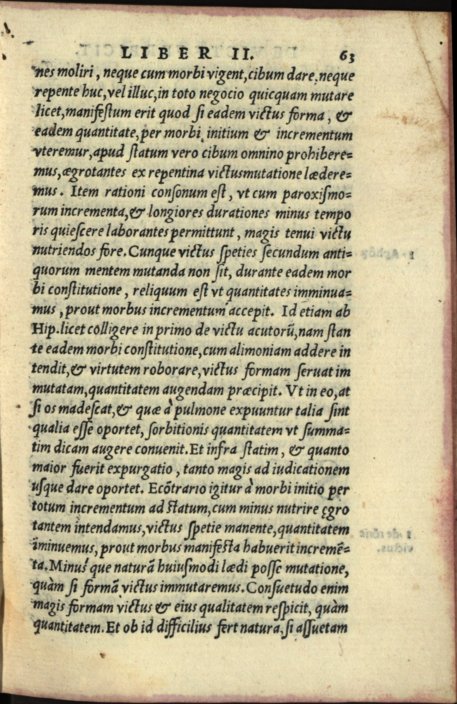 LIBER II. 63
nes moliri, neque cum morbi vigent, cibum dare, neque
repente huc, vel illuc, in toto negocio quicquam mutare
licet, manifestum erit quod si eadem victus forma, &
eadem quantitate, per morbi initium & incrementum
vteremur, apud statum vero cibum omnino prohibere=
mus, ægrotantes ex repentina victusmutatione lædere=
mus. Item rationi consonum est, vt cum paroxismo=
rum incrementa, & longiores durationes minus tempo
ris quiescere laborantes permittunt, magis tenui victu
nutriendos fore. Cunque victus speties secundum anti=
quorum mentem mutanda non sit, durante eadem mor
bi constitutione, reliquum est vt quantitates imminua=
mus, prout morbus incrementum accepit. Id etiam ab
Hip. licet colligere in primo de victu acutorū, nam stan
te eadem morbi constitutione, cum alimoniam addere in
tendit, & virtutem roborare, victus formam seruat im
mutatam, quantitatem augendam præcipit. Vt in eo, at
si os madescat, & quæ à pulmone expuuntur talia sint
qualia esse oportet, sorbitionis quantitatem vt summa=
tim dicam augere conuenit. Et infra statim, & quanto
maior fuerit expurgatio, tanto magis ad iudicationem
usque dare oportet. Ecōtrario igitur à morbi initio per
totum incrementum ad statum, cum minus nutrire ęgro
tantem intendamus, victus spetie manente, quantitatem
īminuemus, prout morbus manifesta habuerit incremē=
ta. Minus que naturā huiusmodi lædi posse mutatione,
quàm si formā victus immutaremus. Consuetudo enim
magis formam victus & eius qualitatem respicit, quàm
quantitatem. Et ob id difficilius fert natura, si assuetam